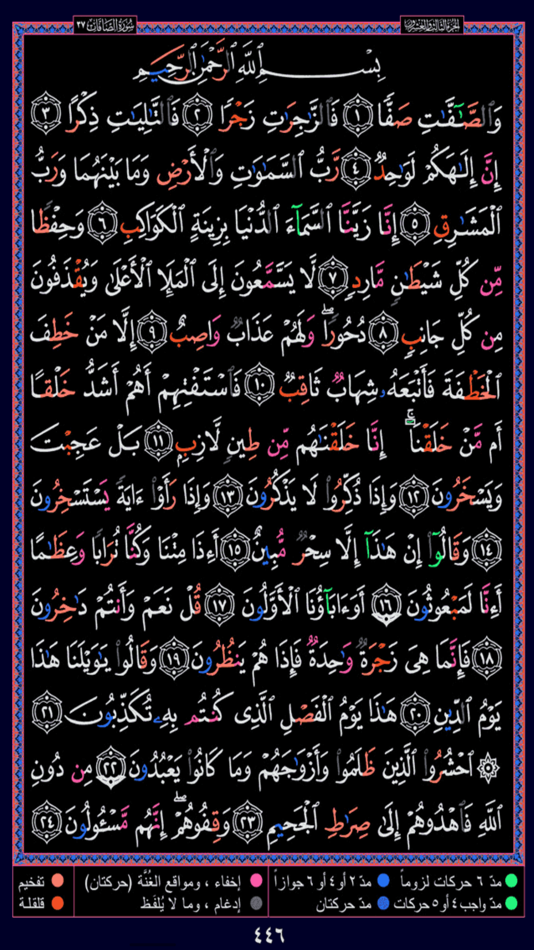 الجزء الثالث والعشرون
سُورَةُ الصَّافَّات ٣٧
بِسْمِ ٱللَّهِ ٱلرَّحْمَٰنِ ٱلرَّحِيمِ
وَٱلصَّٰٓفَّٰتِ صَفًّا ١ فَٱلزَّٰجِرَٰتِ زَجْرًا ٢ فَٱلتَّٰلِيَٰتِ ذِكْرًا ٣
إِنَّ إِلَٰهَكُمْ لَوَٰحِدٌ ٤ رَّبُّ ٱلسَّمَٰوَٰتِ وَٱلْأَرْضِ وَمَا بَيْنَهُمَا وَرَبُّ
ٱلْمَشَٰرِقِ ٥ إِنَّا زَيَّنَّا ٱلسَّمَآءَ ٱلدُّنْيَا بِزِينَةٍ ٱلْكَوَاكِبِ ٦ وَحِفْظًا
مِّن كُلِّ شَيْطَٰنٍ مَّارِدٍ ٧ لَّا يَسَّمَّعُونَ إِلَى ٱلْمَلَإِ ٱلْأَعْلَىٰ وَيُقْذَفُونَ
مِن كُلِّ جَانِبٍ ٨ دُحُورًا ۖ وَلَهُمْ عَذَابٌ وَاصِبٌ ٩ إِلَّا مَنْ خَطِفَ
ٱلْخَطْفَةَ فَأَتْبَعَهُۥ شِهَابٌ ثَاقِبٌ ١٠ فَٱسْتَفْتِهِمْ أَهُمْ أَشَدُّ خَلْقًا
أَم مَّنْ خَلَقْنَآ ۚ إِنَّا خَلَقْنَٰهُم مِّن طِينٍ لَّازِبٍ ١١ بَلْ عَجِبْتَ
وَيَسْخَرُونَ ١٢ وَإِذَا ذُكِّرُوا۟ لَا يَذْكُرُونَ ١٣ وَإِذَا رَأَوْا۟ ءَايَةً يَسْتَسْخِرُونَ
١٤ وَقَالُوٓا۟ إِنْ هَٰذَآ إِلَّا سِحْرٌ مُّبِينٌ ١٥ أَءِذَا مِتْنَا وَكُنَّا تُرَابًا وَعِظَٰمًا
أَءِنَّا لَمَبْعُوثُونَ ١٦ أَوَءَابَآؤُنَا ٱلْأَوَّلُونَ ١٧ قُلْ نَعَمْ وَأَنتُمْ دَٰخِرُونَ
١٨ فَإِنَّمَا هِىَ زَجْرَةٌ وَٰحِدَةٌ فَإِذَا هُمْ يَنظُرُونَ ١٩ وَقَالُوا۟ يَٰوَيْلَنَا هَٰذَا
يَوْمُ ٱلدِّينِ ٢٠ هَٰذَا يَوْمُ ٱلْفَصْلِ ٱلَّذِى كُنتُم بِهِۦ تُكَذِّبُونَ ٢١
۞ ٱحْشُرُوا۟ ٱلَّذِينَ ظَلَمُوا۟ وَأَزْوَٰجَهُمْ وَمَا كَانُوا۟ يَعْبُدُونَ ٢٢ مِن دُونِ
ٱللَّهِ فَٱهْدُوهُمْ إِلَىٰ صِرَٰطِ ٱلْجَحِيمِ ٢٣ وَقِفُوهُمْ ۖ إِنَّهُم مَّسْـُٔولُونَ ٢٤
مدّ ٦ حركات لزوماً مدّ ٢ أو ٤ أو ٦ جوازاً إخفاء ، ومواقع الغُنَّة (حركتان) تفخيم
مدّ واجب ٤ أو ٥ حركات مدّ حركتان إدغام ، وما لا يُلفَظ قلقلة
٤٤٦